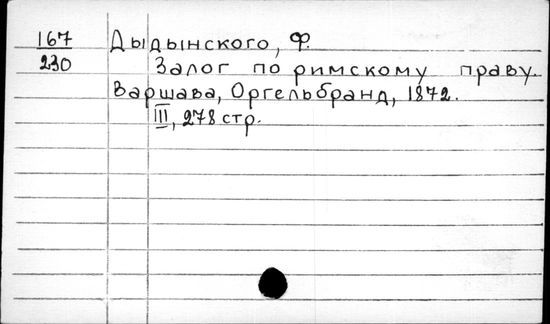 167 Дыдынского, Ф.
230 Залог по римскому праву.
Варшава, Оргельбранд, 1872.
III, 278 стр.